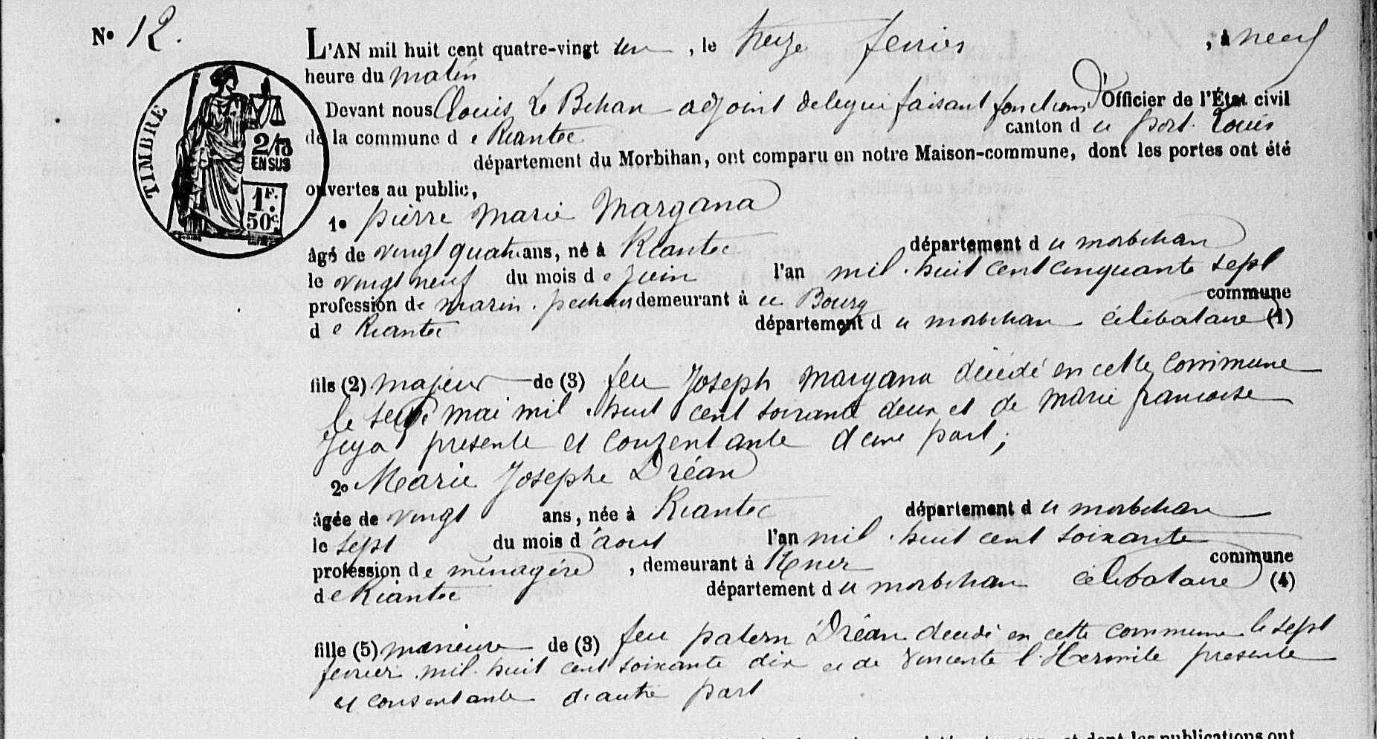 No 12.
L'AN mil huit cent quatre-vingt un, le treize fevrier, à neuf
heure du matin
Devant nous Louis Le Bihan adjoint delegué faisant fonctions d'Officier de l'État civil
de la commune d e Riantec canton d u port. Louis
département du Morbihan, ont comparu en notre Maison-commune, dont les portes ont été
ouvertes au public,
TIMBRE
2/10
EN SUS
1F.
50c.
1o pierre Marie Margana
âgé de vingt quatre ans, né à Riantec département d u morbihan
le vingt neuf du mois d e Juin l'an mil. huit cent cinquante sept
profession de marin. pecheur demeurant à u Bourg commune
d e Riantec département d u morbihan célibataire (1)
fils (2) majeur de (3) feu Joseph margana décédé en cette commune
le mai mil. huit cent soixante deux et de marie francoise
presente et consentante d'une part;
2o Marie Josephe Dréan
âgée de vingt ans, née à Riantec département d u morbihan
le sept du mois d'aout l'an mil. huit cent soixante
profession de ménagére, demeurant à Kner commune
d e Riantec département d u morbihan célibataire (4)
fille (5) mineure de (3) feu patern Dréan decedé en cette commune le sept
fevrier. mil. huit cent soixante dix et de Vincente l'Hermite presente
et consentante d'autre part
et dont les publications ont